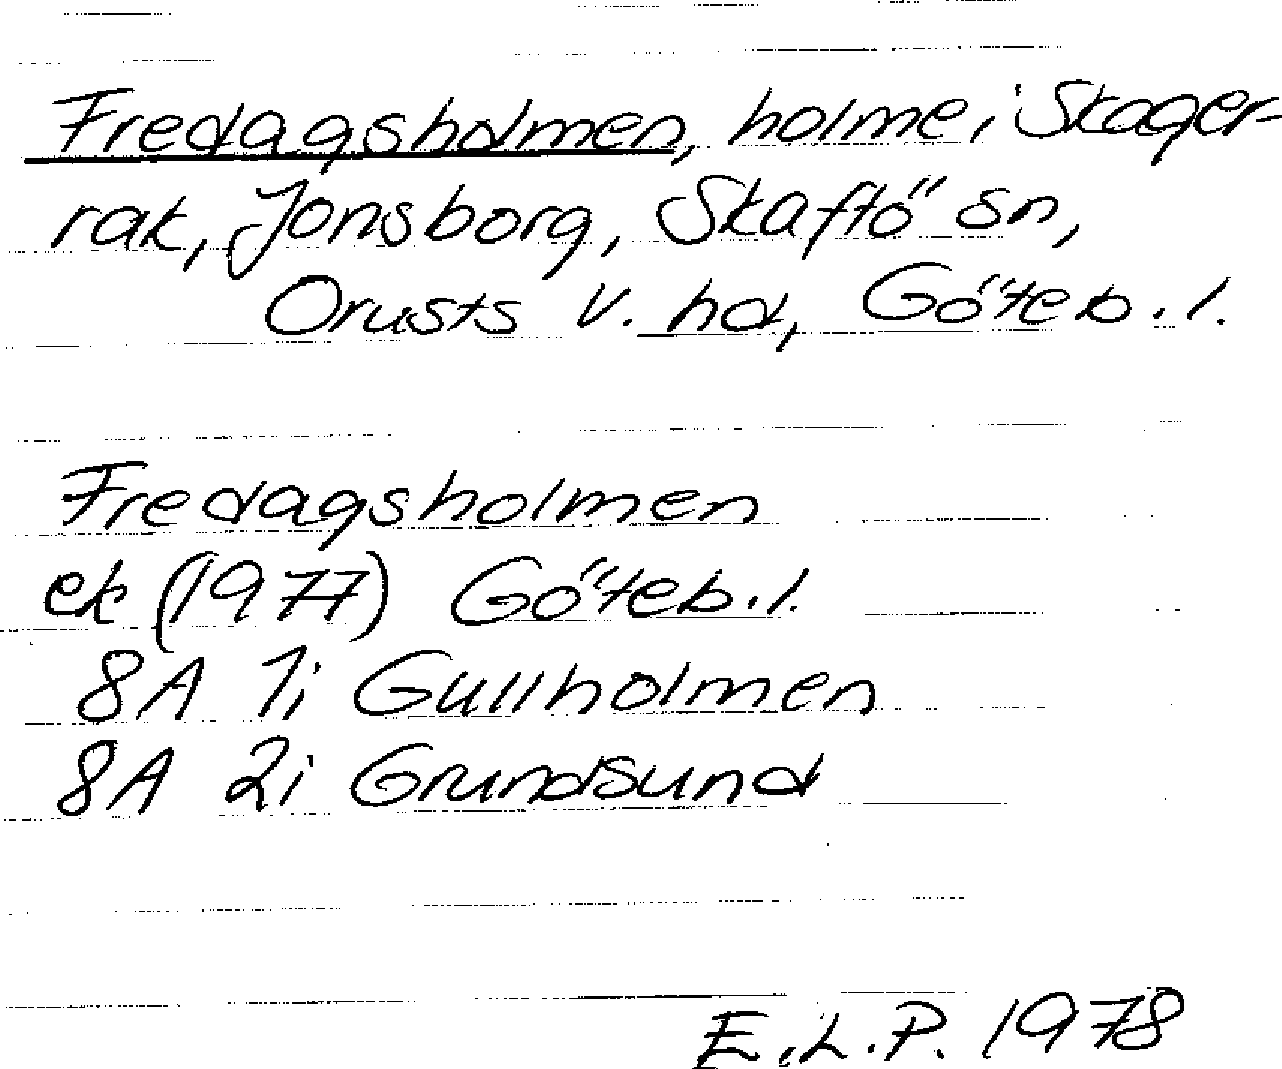 Fredagsholmen, holme i Skager-
rak, Jonsborg, Skaftö sn,
Orusts v. hd, Göteb. l.
Fredagsholmen
ek (1977) Göteb. l.
8A 1i Gullholmen
8A 2i Grundsund
E.L.P. 1978